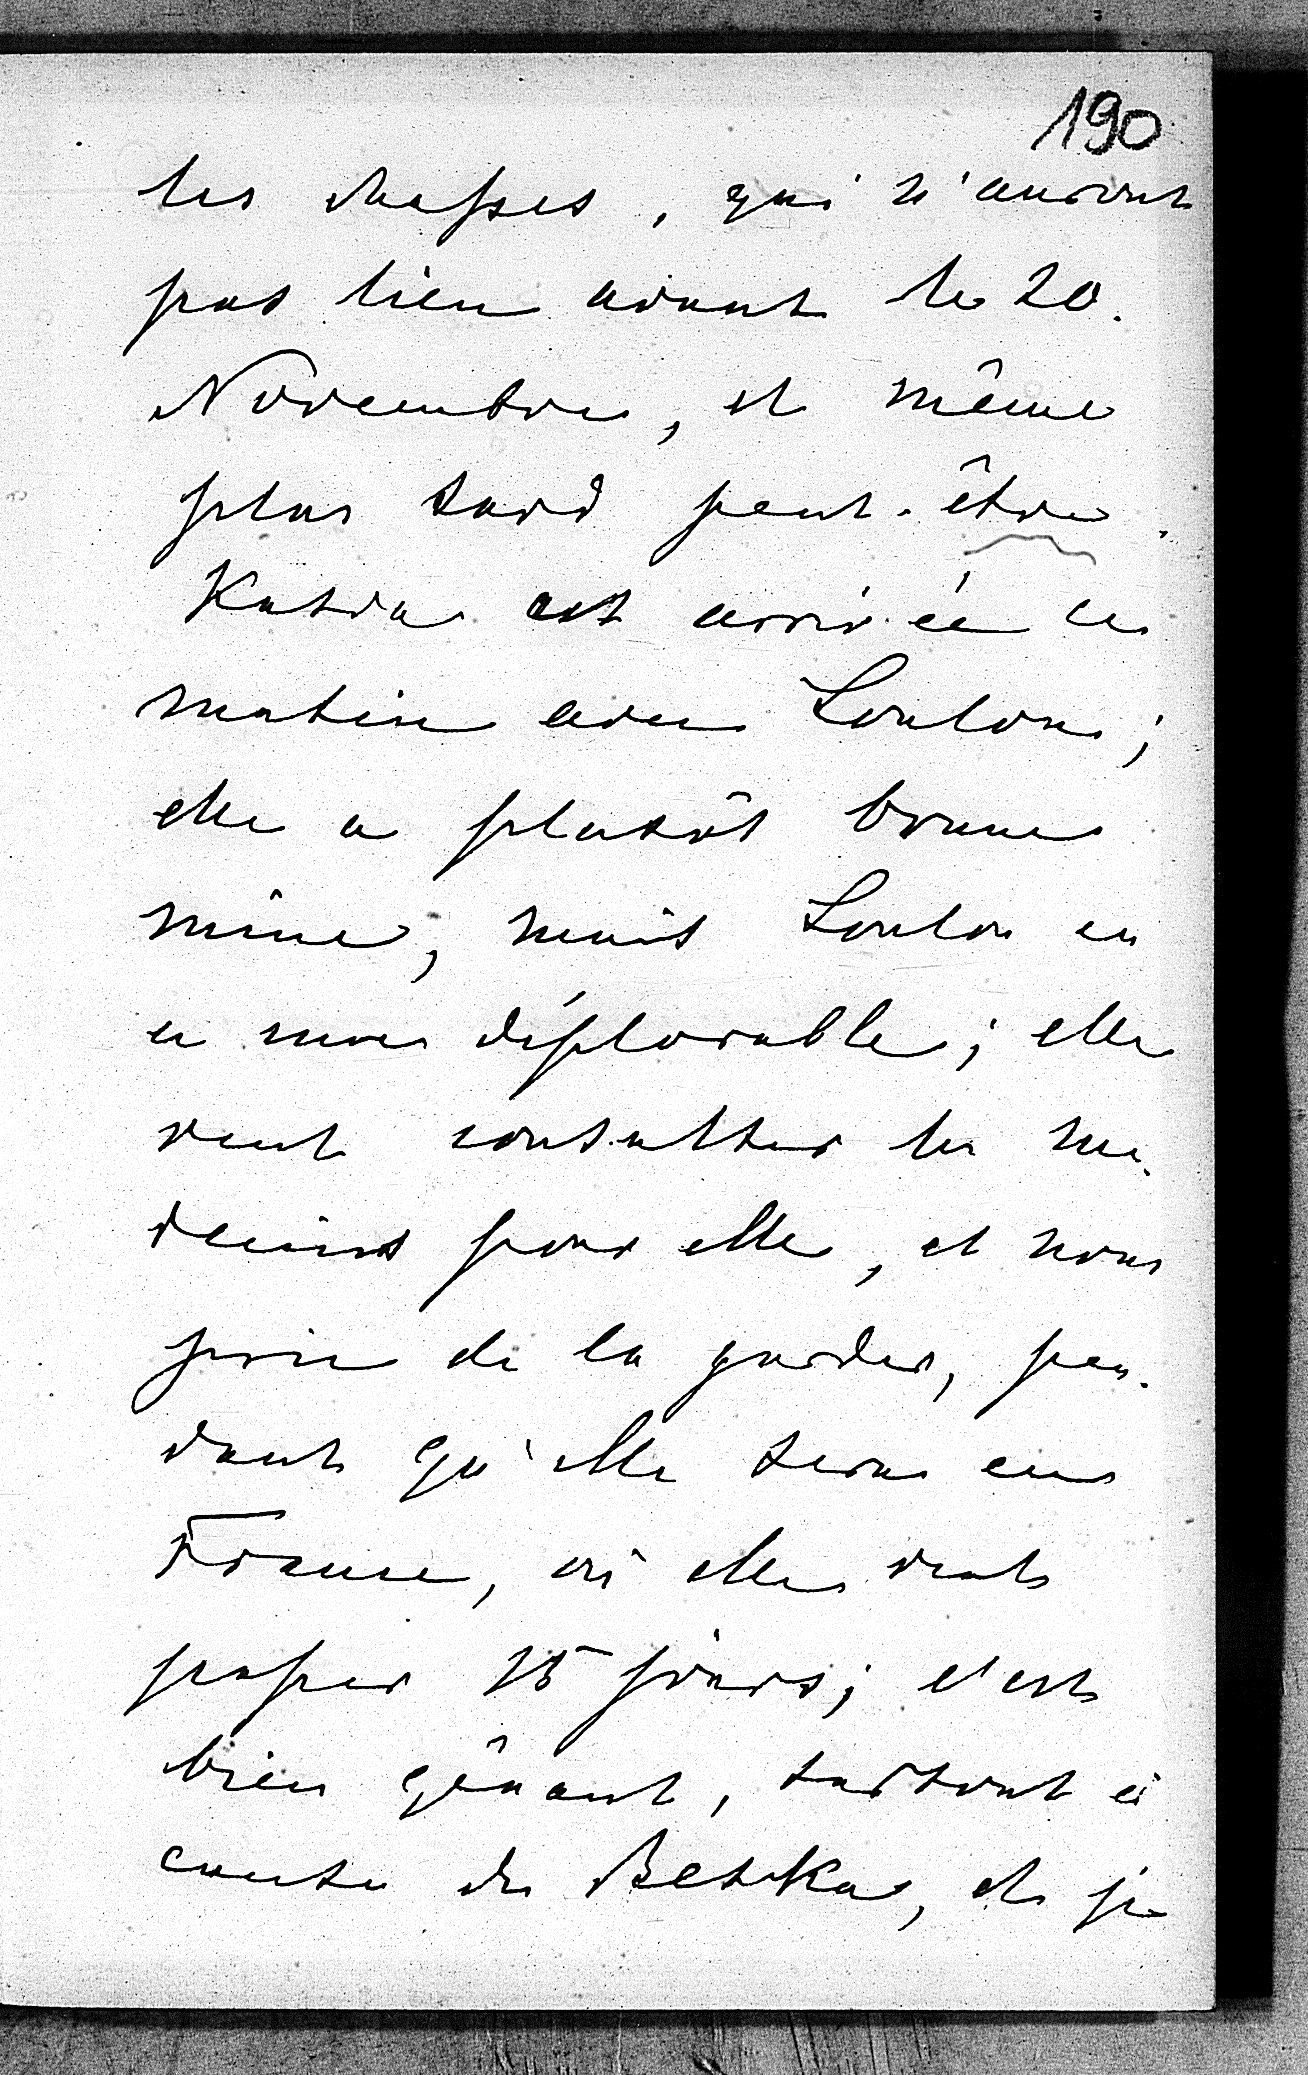 190
les chasses, qui n'auront
pas lieu avant le 20.
Novembre, et même
plus tard peut-être.
Katia est arrivée ce
matin avec Loulou;
elle a plutôt bonne
mine, mais Loulou en
a une déplorable; elle
veut consulter les mé-
decins pour elle, et nous
prie de la garder, pen-
dant qu'elle sera en
France, où elle veut
passer 15 jours; c'est
bien gênant, surtout à
cause de Betka, et je